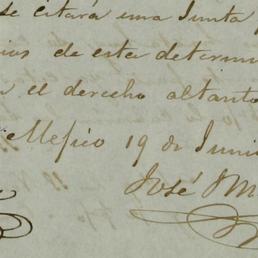 se citará una Junta
ios de esta determi
el derecho al tanto
Mejico 19 de Juni
José M